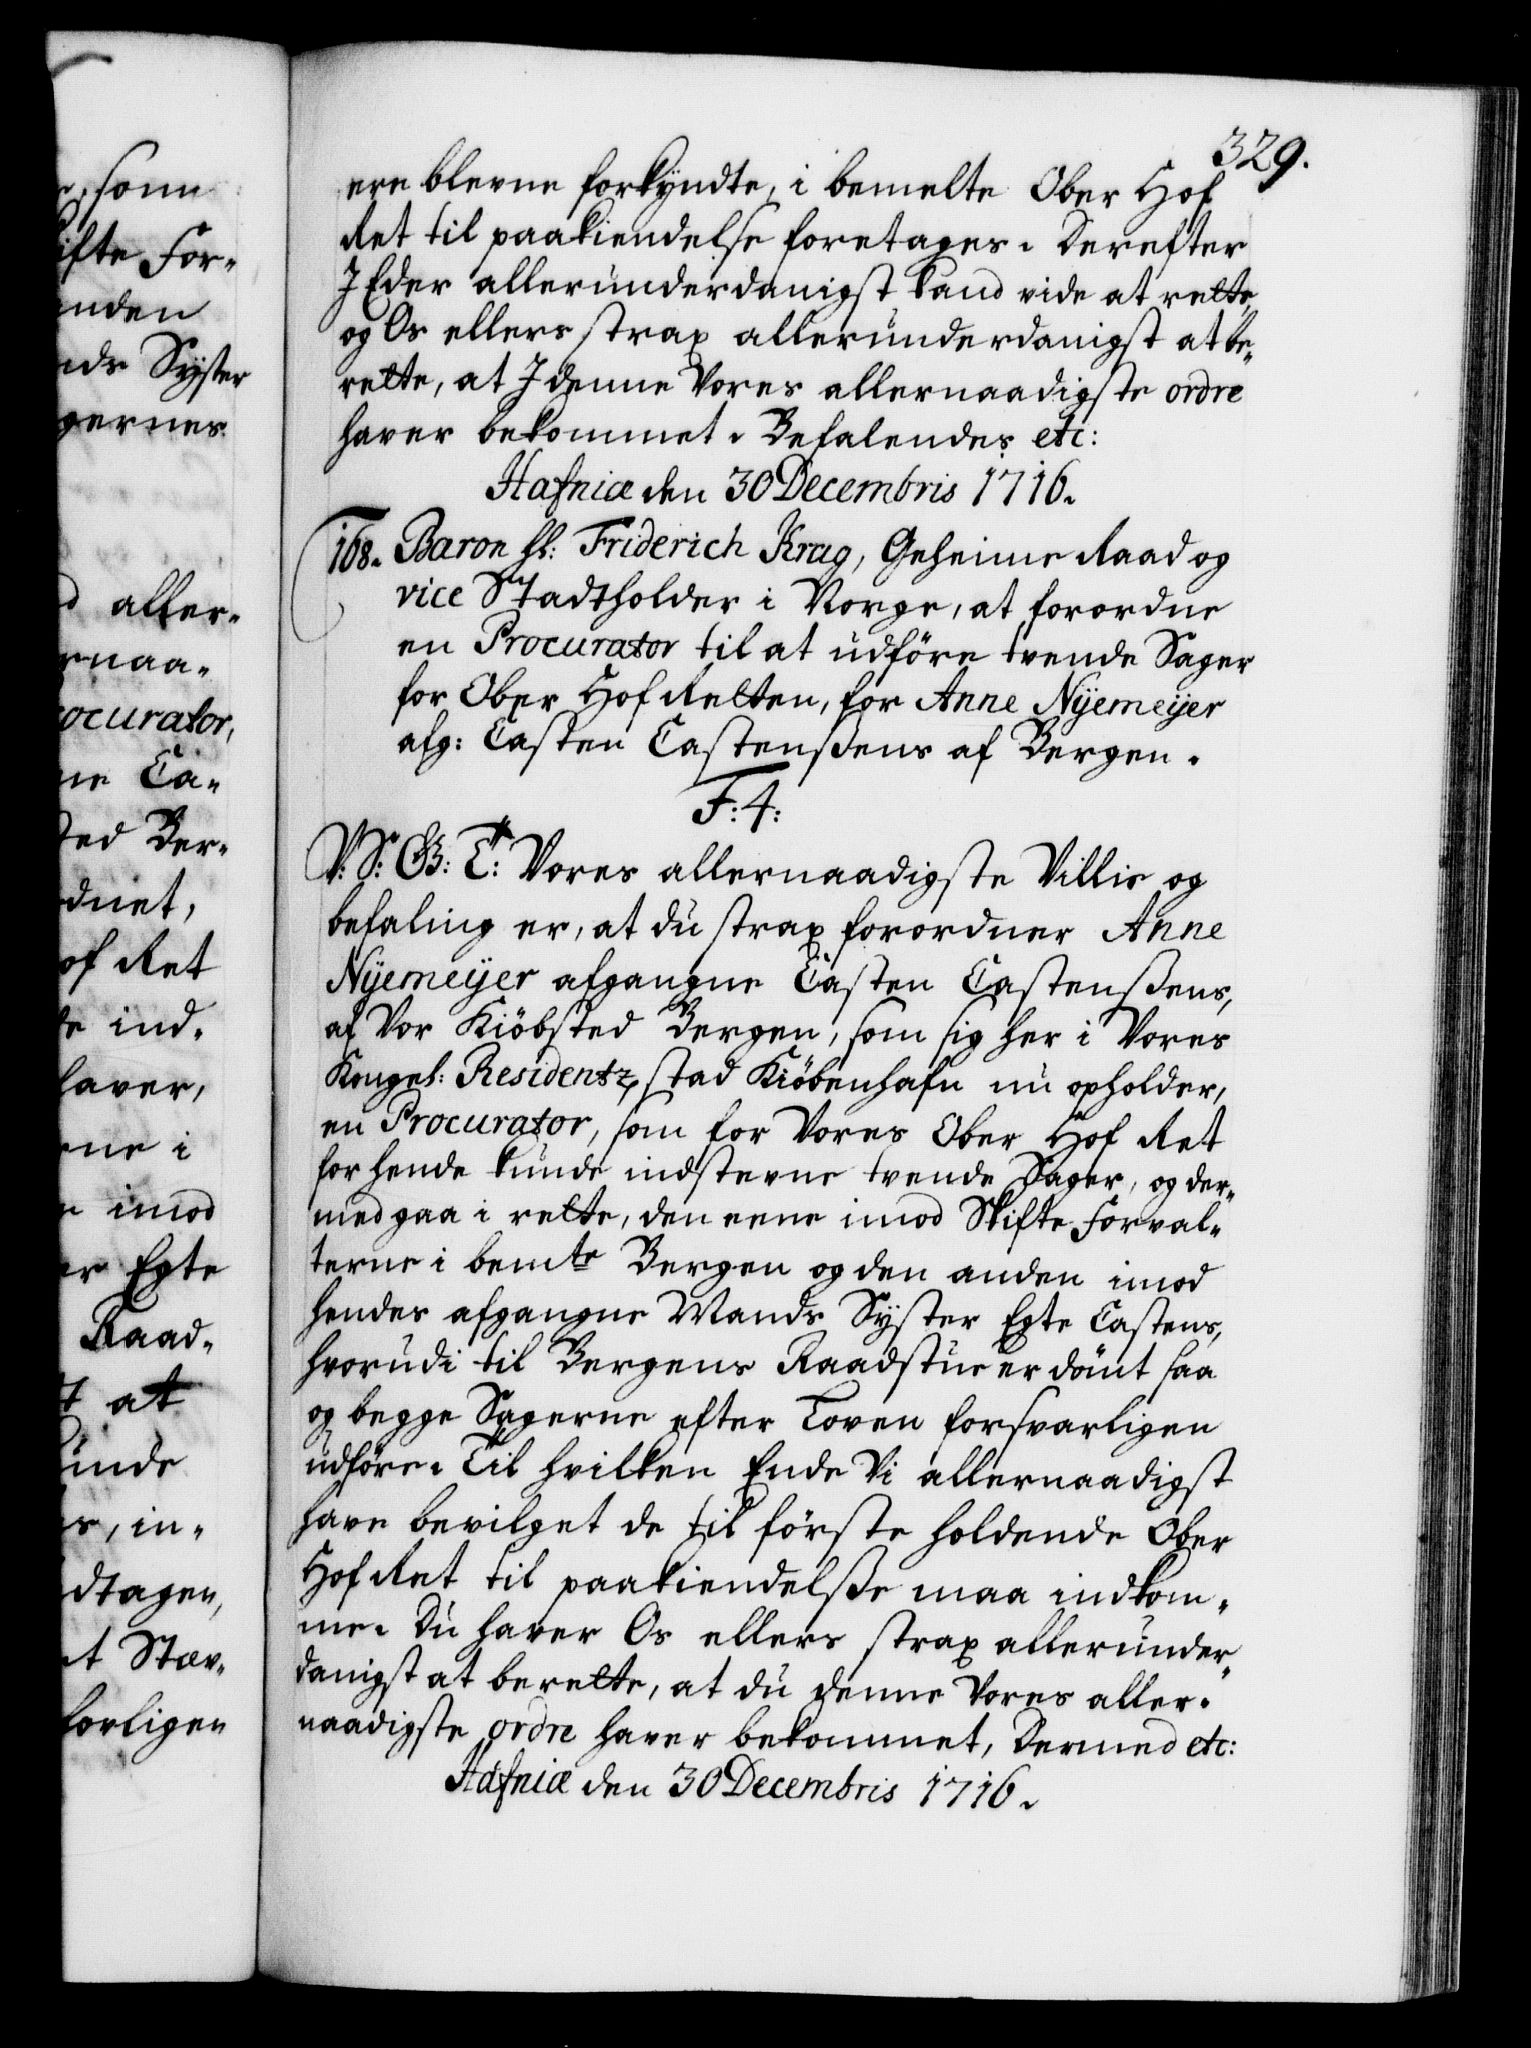 329.
ere blevne forkÿndte, i bemelte Ober Hof
Ret til paakiendelse foretages. Derefter
I Eder allerunderdanigst kand vide at rette,
og Os ellers strax allerunderdanigst at be„
rette, at I denne Vores allernaadigste ordre
haver bekommet. Befalendes etc:
Hafniæ den 30 Decembris 1716.
168. Baron hl: Friderich Krag, Geheime Raad og
vice Stadtholder i Norge, at forordne
en Procurator til at udföre tvende Sager
for Ober Hof Retten, for Anne Nÿemeÿer
afg: Casten Castenßens af Bergen.
F: 4:
V: S: G: T: Vores allernaadigste Villie og
befaling er, at du strax forordner Anne
Nÿemeÿer afgangne Casten Castenßens,
af Vor Kiöbsted Bergen, som sig her i Vores
Kongel: Residentz stad Kiöbenhafn nu opholder,
en Procurator, som for Vores Ober Hof Ret
for hende kunde indstevne tvende Sager, og der„
med gaa i rette, den eene imod Skifte Forval„
terne i bemte Bergen og den anden imod
hendes afgangne Mands Sÿster Egte Castens,
hvorudi til Bergens Raadstue er dömt saa
og begge Sagerne efter Loven forsvarligen
udföre. Til hvilken Ende Vi allernaadigst
have bevilget de til förste holdende Ober
Hof Ret til paakiendelße maa indkom„
me. Du haver Os ellers strax allerunder„
danigst at berette, at du denne Vores aller„
naadigste ordre haver bekommet, Dermed etc:
Hafniæ den 30 Decembris 1716.
som
ifte For„
anden
nds Sÿster
gernes
aller„
rnaa„
ocurator,
ne Ca„
sted Ber„
rdnet,
of Ret
te ind„
haver,
rne i
imod
er Egte
Raad„
at
unde
, in„
dtagen,
t Stæv„
forligen